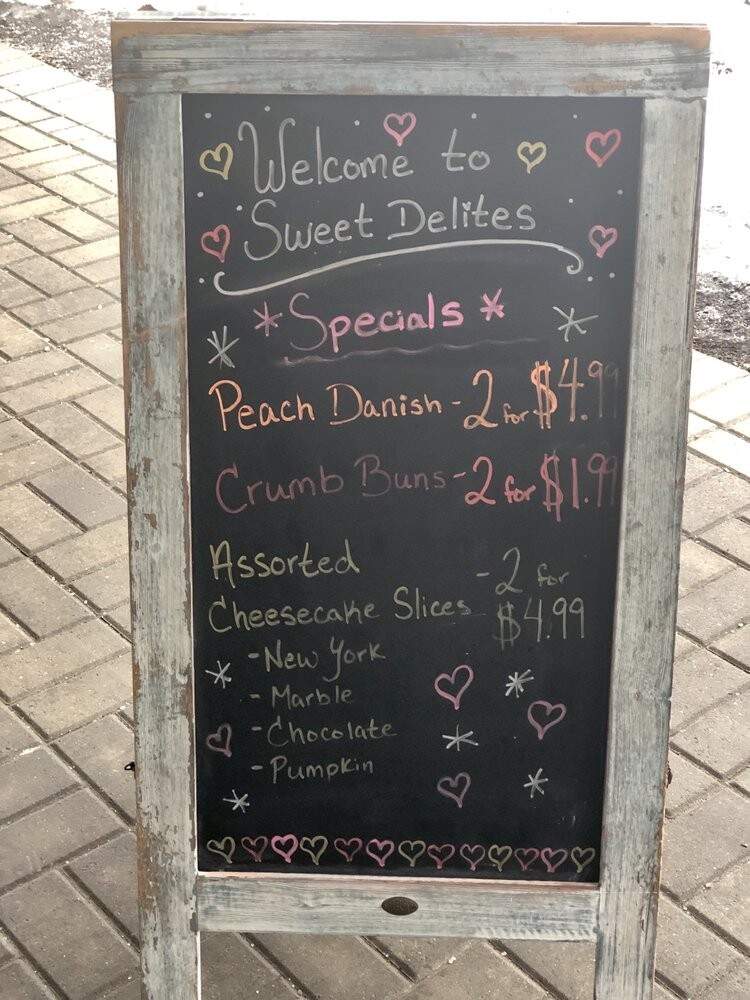 Welcome to
Sweet Delites
* Specials *
Peach Danish - 2 for $4.99
Crumb Buns - 2 for $1.99
Assorted
Cheesecake Slices - 2 for
$4.99
- New York
- Marble
- Chocolate
- Pumpkin